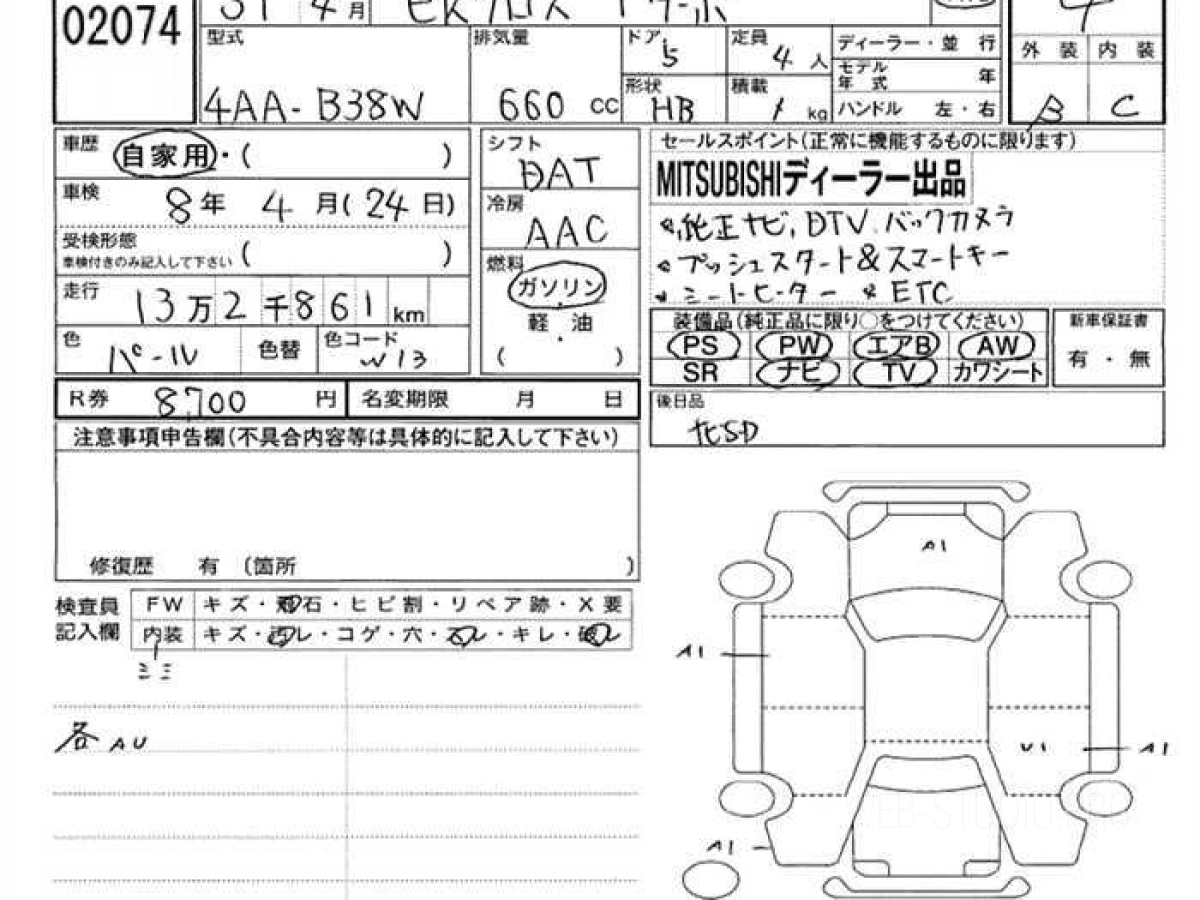 02074
31 4月 eKクロス Tターボ
型式 4AA-B38W
排気量 660 cc
ドア 5
定員 4 人
形状 HB
積載 / kg
ディーラー・並 行
モデル年式 年
ハンドル 左・右
外 装 内 装
B C
車歴 自家用・( )
車検 8年 4月(24日)
受検形態 ( )
車検付きのみ記入して下さい
走行 13万2千861km
色 パール 色替 色コード W13
シフト DAT
冷房 AAC
燃料 ガソリン
軽・油
( )
セールスポイント(正常に機能するものに限ります)
MITSUBISHIディーラー出品
*純正ナビ, DTV, バックカメラ
*プッシュスタート&スマートキー
*シートヒーター *ETC
装備品(純正品に限り○をつけてください)
PS PW エアB AW
SR ナビ TV カワシート
新車保証書
有・無
R券 8,700 円 名変期限 月 日
後日品
ナビSD
注意事項申告欄(不具合内容等は具体的に記入して下さい)
修復歴 有 〔箇所 )
検査員記入欄
FW キズ・飛石・ヒビ割・リペア跡・X要
内装 キズ・汚レ・コゲ・穴・スレ・キレ・破レ
ミミ
各AU
A1
A1
U1 A1
A1